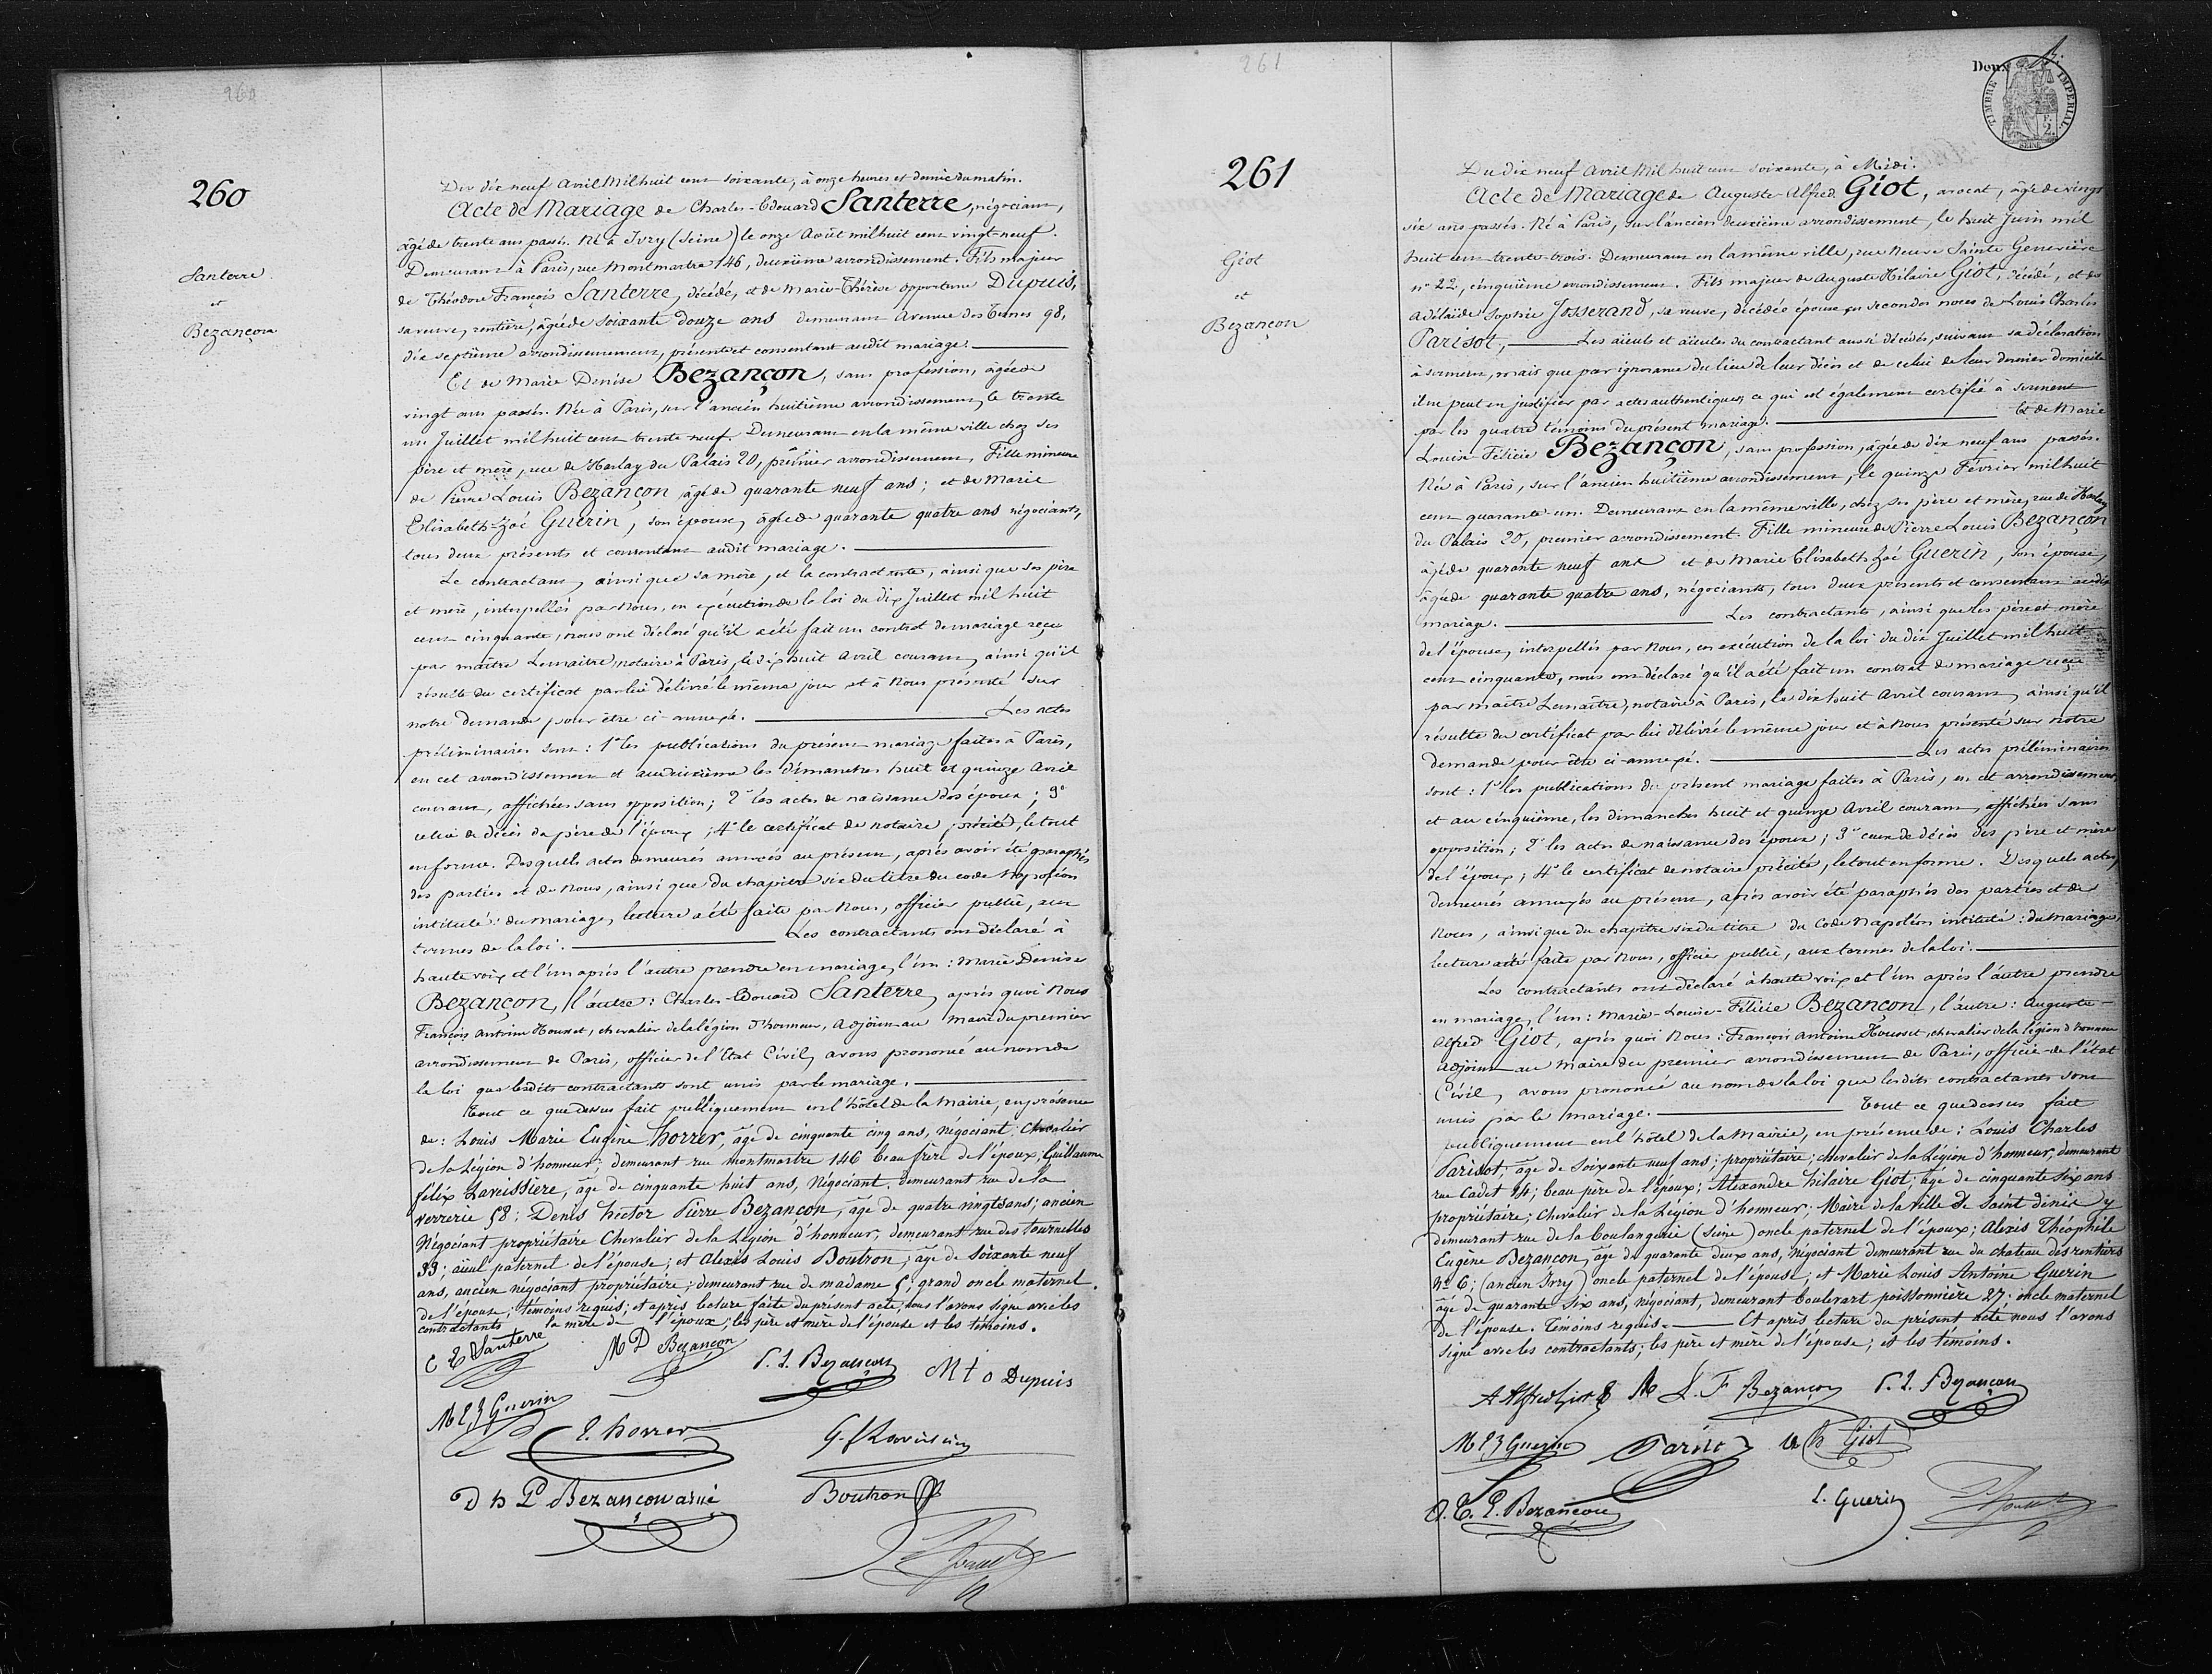 260
260
Santerre
et
Bezançon
Du dix neuf avril Mil huit cent soixante, à onze heures et demie du matin.
Acte de Mariage de Charles-Edouard Santerre, négociant,
âgé de trente ans passés. Né à Ivry (Seine) le onze Août mil huit cent vingt-neuf.
Demeurant à Paris, rue Montmartre 146, deuxième arrondissement. Fils majeur
de Théodore François Santerre, décédé, et de Marie-Thérèse opportune Dupuis,
sa veuve, rentière, âgée de soixante douze ans demeurant Avenue des Ternes 98,
dix septième arrondissement, présente et consentant audit mariage.
Et de Marie Denise Bezançon, sans profession, âgée de
vingt ans passés. Née à Paris, sur l'ancien huitième arrondissement, le trente
un Juillet mil huit cent trente neuf. Demeurant en la même ville chez ses
père et mère, rue de Harlay du Palais 20, premier arrondissement. Fille mineure
de Pierre Louis Bezançon âgé de quarante neuf ans; et de Marie
Elisabeth-Zoé Guerin, son épouse, âgée de quarante quatre ans négociants,
tous deux présents et consentant audit mariage.
Le contractant, ainsi que sa mère, et la contractante, ainsi que ses père
et mère, interpellés par Nous, en exécution de la loi du dix Juillet mil huit
cent cinquante, nous ont déclaré qu'il a été fait un contrat de mariage reçu
par maître Lemaitre, notaire à Paris, le dix huit Avril courant, ainsi qu'il
résulte du certificat par lui délivré le même jour et à Nous présenté sur
notre demande pour être ci-annexé. Les actes
préliminaires sont: 1° les publications du présent mariage faites à Paris,
en cet arrondissement et au deuxième les dimanches huit et quinze Avril
courant, affichées sans opposition; 2° les actes de naissance des époux; 3°
celui de décès du père de l'époux; 4° le certificat de notaire précité, le tout
en forme. Desquels actes demeurés annexés au présent, après avoir été paraphés
des parties et de Nous, ainsi que du chapitre six du titre du code Napoléon
intitulé: du mariage, lecture a été faite par Nous, officier public, aux
termes de la loi. Les contractants ont déclaré à
haute voix et l'un après l'autre prendre en mariage, l'un: Marie Denise
Bezançon, l'autre: Charles-Edouard Santerre, après quoi Nous
François Antoine Housset, chevalier de la légion d'honneur, Adjoint au Maire du premier
arrondissement de Paris, officier de l'Etat Civil, avons prononcé au nom de
la loi que lesdits contractants sont unis par le mariage.
Tout ce que dessus fait publiquement en l'hôtel de la Mairie, en présence
de: Louis Marie Eugène Horrer, âgé de cinquante cinq ans, négociant, Chevalier
de la Légion d'honneur; demeurant rue montmartre 146 beau frère de l'époux; Guillaume
félix Laveissiere, âgé de cinquante huit ans, Négociant, demeurant rue de la
verrerie 58; Denis hector Pierre Bezançon, âgé de quatre vingts ans; ancien
Négociant propriétaire Chevalier de la Légion d'honneur, demeurant rue des tournelles
33; aïeul paternel de l'épouse; et Alexis Louis Boutron; âgé de soixante neuf
ans, ancien négociant propriétaire; demeurant rue de madame 5; grand oncle maternel
de l'épouse; témoins requis; et après lecture faite du présent acte, nous l'avons signé avec les
contractants la mère de l'époux; les père et mère de l'épouse et les témoins.
C E Santerre
M D Bezançon
P. L. Bezançon
M t o Dupuis
M E Z Guerin
E. horrer
G. f Laveissière
D h P Bezançon ainé
Boutron
261
261
Giot
et
Bezançon
Deux
TIMBRE IMPERIAL
F. 2.
SEINE
Du dix neuf Avril Mil huit cent soixante, à Midi.
Acte de Mariage de Auguste-Alfred Giot, avocat, âgé de vingt
six ans passés. Né à Paris, sur l'ancien deuxième arrondissement, le huit Juin mil
huit cent trente-trois. Demeurant en la même ville, rue Neuve Sainte Geneviève
n° 22, cinquième arrondissement. Fils majeur de Auguste Hilaire Giot, décédé, et de
Adélaïde Sophie Josserand, sa veuve, décédée épouse en secondes noces de Louis Charles
Parisot, Les aïeuls et aïeules du contractant aussi décédés, suivant sa déclaration
à serment, mais que par ignorance du lieu de leur décès et de celui de leur dernier domicile
il ne peut en justifier par actes authentiques, ce qui est également certifié à serment
par les quatre témoins du présent mariage. Et de Marie
Louise-Félicie Bezançon, sans profession, âgée de dix neuf ans passés.
Née à Paris, sur l'ancien huitième arrondissement, le quinze Février mil huit
cent quarante-un. Demeurant en la même ville, chez ses père et mère, rue de Harlay
du Palais 20, premier arrondissement. Fille mineure de Pierre Louis Bezançon
âgé de quarante neuf ans et de Marie Elisabeth Zoé Guerin, son épouse,
âgée de quarante quatre ans, négociants, tous deux présents et consentant audit
mariage. Les contractants, ainsi que les père et mère
de l'épouse, interpellés par Nous, en exécution de la loi du dix Juillet mil huit
cent cinquante, nous ont déclaré qu'il a été fait un contrat de mariage reçu
par maître Lemaître, notaire à Paris, le dix huit Avril courant, ainsi qu'il
résulte du certificat par lui délivré le même jour et à Nous présenté sur notre
demande pour être ci-annexé. Les actes préliminaires
sont: 1° les publications du présent mariage faites à Paris, en cet arrondissement,
et au cinquième, les dimanches huit et quinze Avril courant, affichées sans
opposition; 2° les actes de naissance des époux; 3° ceux de décès des père et mère
de l'époux; 4° le certificat de notaire précité, le tout en forme. Desquels actes,
demeurés annexés au présent, après avoir été paraphés des parties et de
Nous, ainsi que du chapitre six du titre du Code Napoléon intitulé: du Mariage,
lecture a été faite par Nous, officier public, aux termes de la loi.
Les contractants ont déclaré à haute voix et l'un après l'autre prendre
en mariage, l'un: Marie-Louise-Félicie Bezançon, l'autre: Auguste-
Alfred Giot, après quoi Nous: François Antoine Housset, chevalier de la légion d'honneur
Adjoint au Maire du premier arrondissement de Paris, officier de l'état
Civil, avons prononcé au nom de la loi que lesdits contractants sont
unis par le mariage. Tout ce que dessus fait
publiquement en l'hôtel de la Mairie, en présence de: Louis Charles
Parisot, âgé de soixante neuf ans; propriétaire; chevalier de la Légion d'honneur, demeurant
rue Cadet 14; beau père de l'époux; Alexandre hilaire Giot; âgé de cinquante six ans
propriétaire; chevalier de la Légion d'honneur; Maire de la ville de Saint denis y
demeurant rue de la boulangerie (seine) oncle paternel de l'époux; Alexis Théophile
Eugène Bezançon, âgé de quarante deux ans, négociant demeurant rue du chateau des rentiers
N° 6; (ancien Ivry) oncle paternel de l'épouse; et Marie Louis Antoine Guerin
âgé de quarante six ans, négociant, demeurant boulevart poissonnière 27; oncle maternel
de l'épouse. Témoins requis. Et après lecture du présent acte nous l'avons
signé avec les contractants; les père et mère de l'épouse; et les témoins.
A Alfred Giot
M L. F Bezançon
P. L. Bezançon
M E Z Guerin
Parisot
A h Giot
A. T. E. Bezançon
L. Guerin